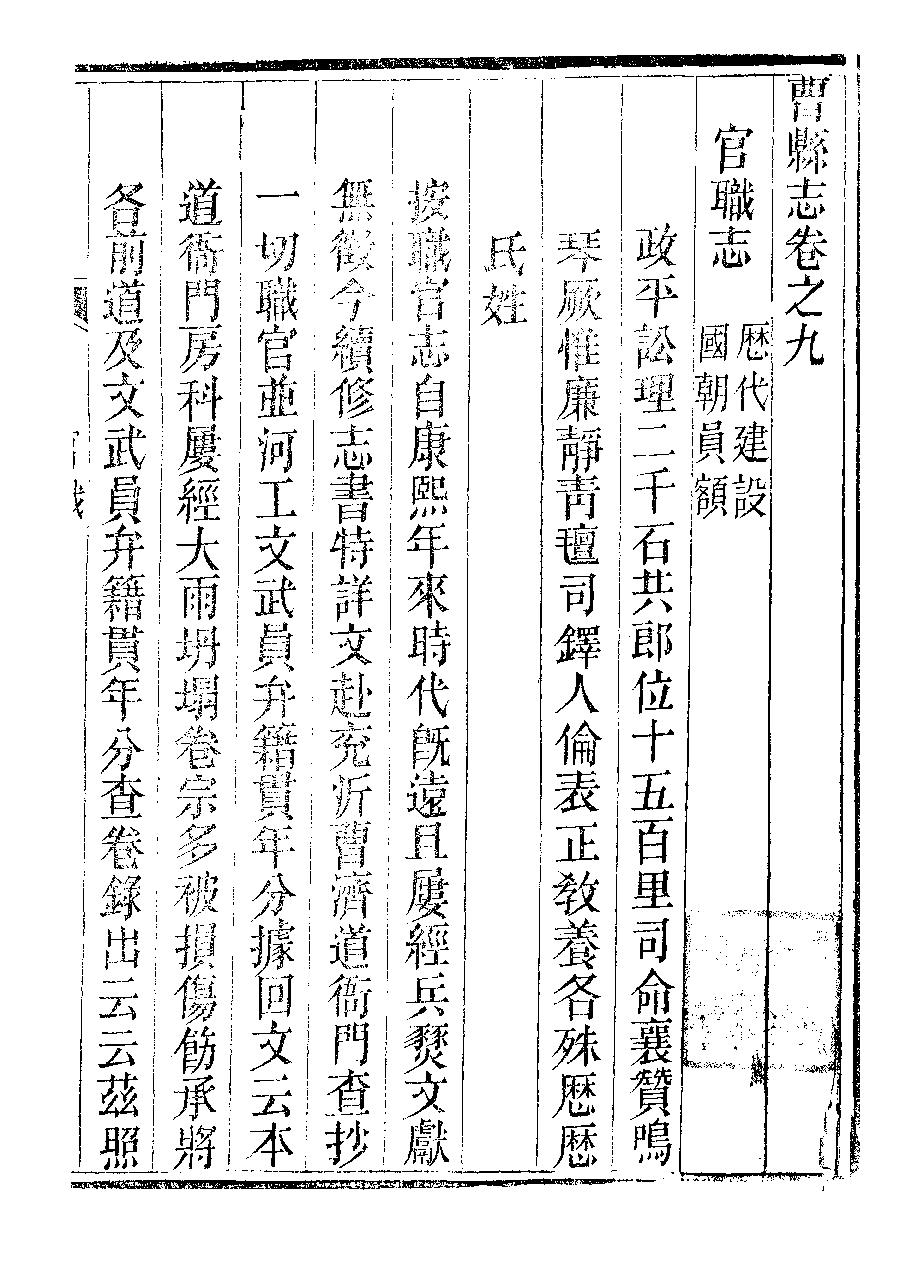 曹縣志卷之九
官職志
歷代建設
國朝員額
政平訟理二千石共郎位十五百里司命襄贊鳴
琴厥惟廉靜靑氊司鐸人倫表正敎養各殊歷歷
氏姓
按職官志自康熙年來時代旣遠且屢經兵燹文獻
無徵今續修志書特詳文赴兗沂曹濟道衙門查抄
一切職官並河工文武員弁籍貫年分據回文云本
道衙門房科屢經大雨坍塌卷宗多被損傷飭承將
各前道及文武員弁籍貫年分查卷錄出云云茲照